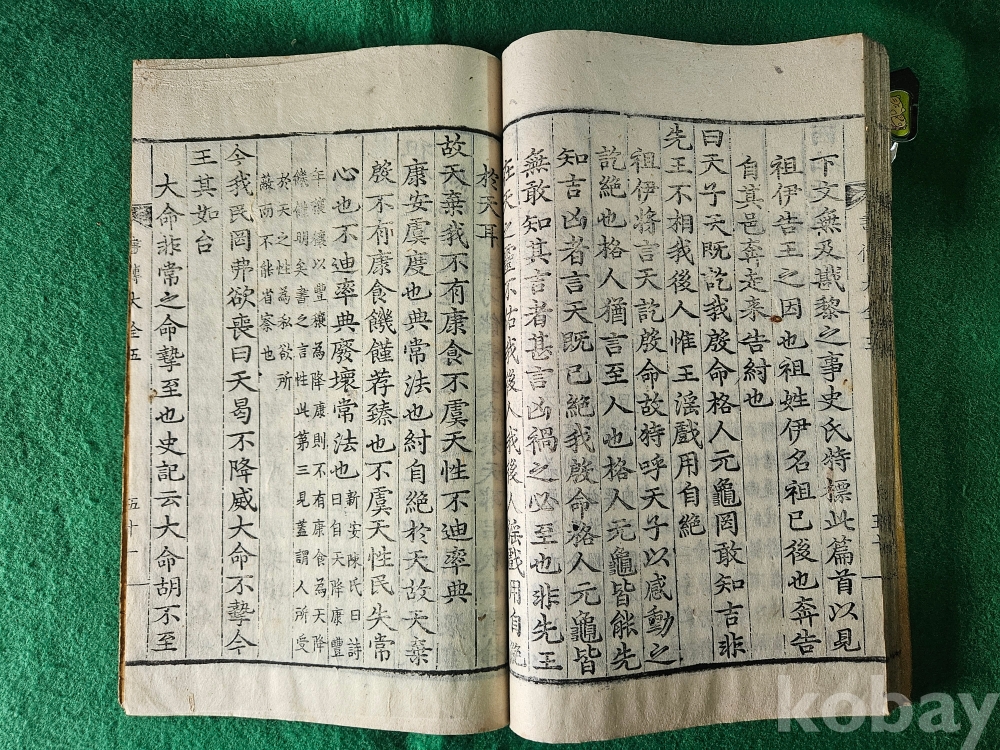 下文無及戡黎之事史氏特標此篇首以見
祖伊告王之因也祖姓伊名祖已後也奔告
自其邑奔走來告紂也
曰天子天既訖我殷命格人元龜罔敢知吉非
先王不相我後人惟王淫戲用自絶
祖伊將言天訖殷命故特呼天子以感動之
訖絶也格人猶言至人也格人元龜皆能先
知吉凶者言天既已絶我殷命格人元龜皆
無敢知其吉者甚言凶禍之必至也非先王
在天之靈不佑我後人我後人淫戲用自絶
於天耳
故天棄我不有康食不虞天性不迪率典
康安虞度也典常法也紂自絶於天故天棄
殷不有康食饑饉荐臻也不虞天性民失常
心也不迪率典廢壞常法也
新安陳氏曰詩
曰自天降康豐
年穰穰以豐穰為降康則不有康食為天降
饑饉明矣書之言性此第三見蓋謂人所受
於天之性為私欲所
蔽而不能省察也
今我民罔弗欲喪曰天曷不降威大命不摯今
王其如台
大命非常之命摯至也史記云大命胡不至
書傳大全五
五十一
kobay